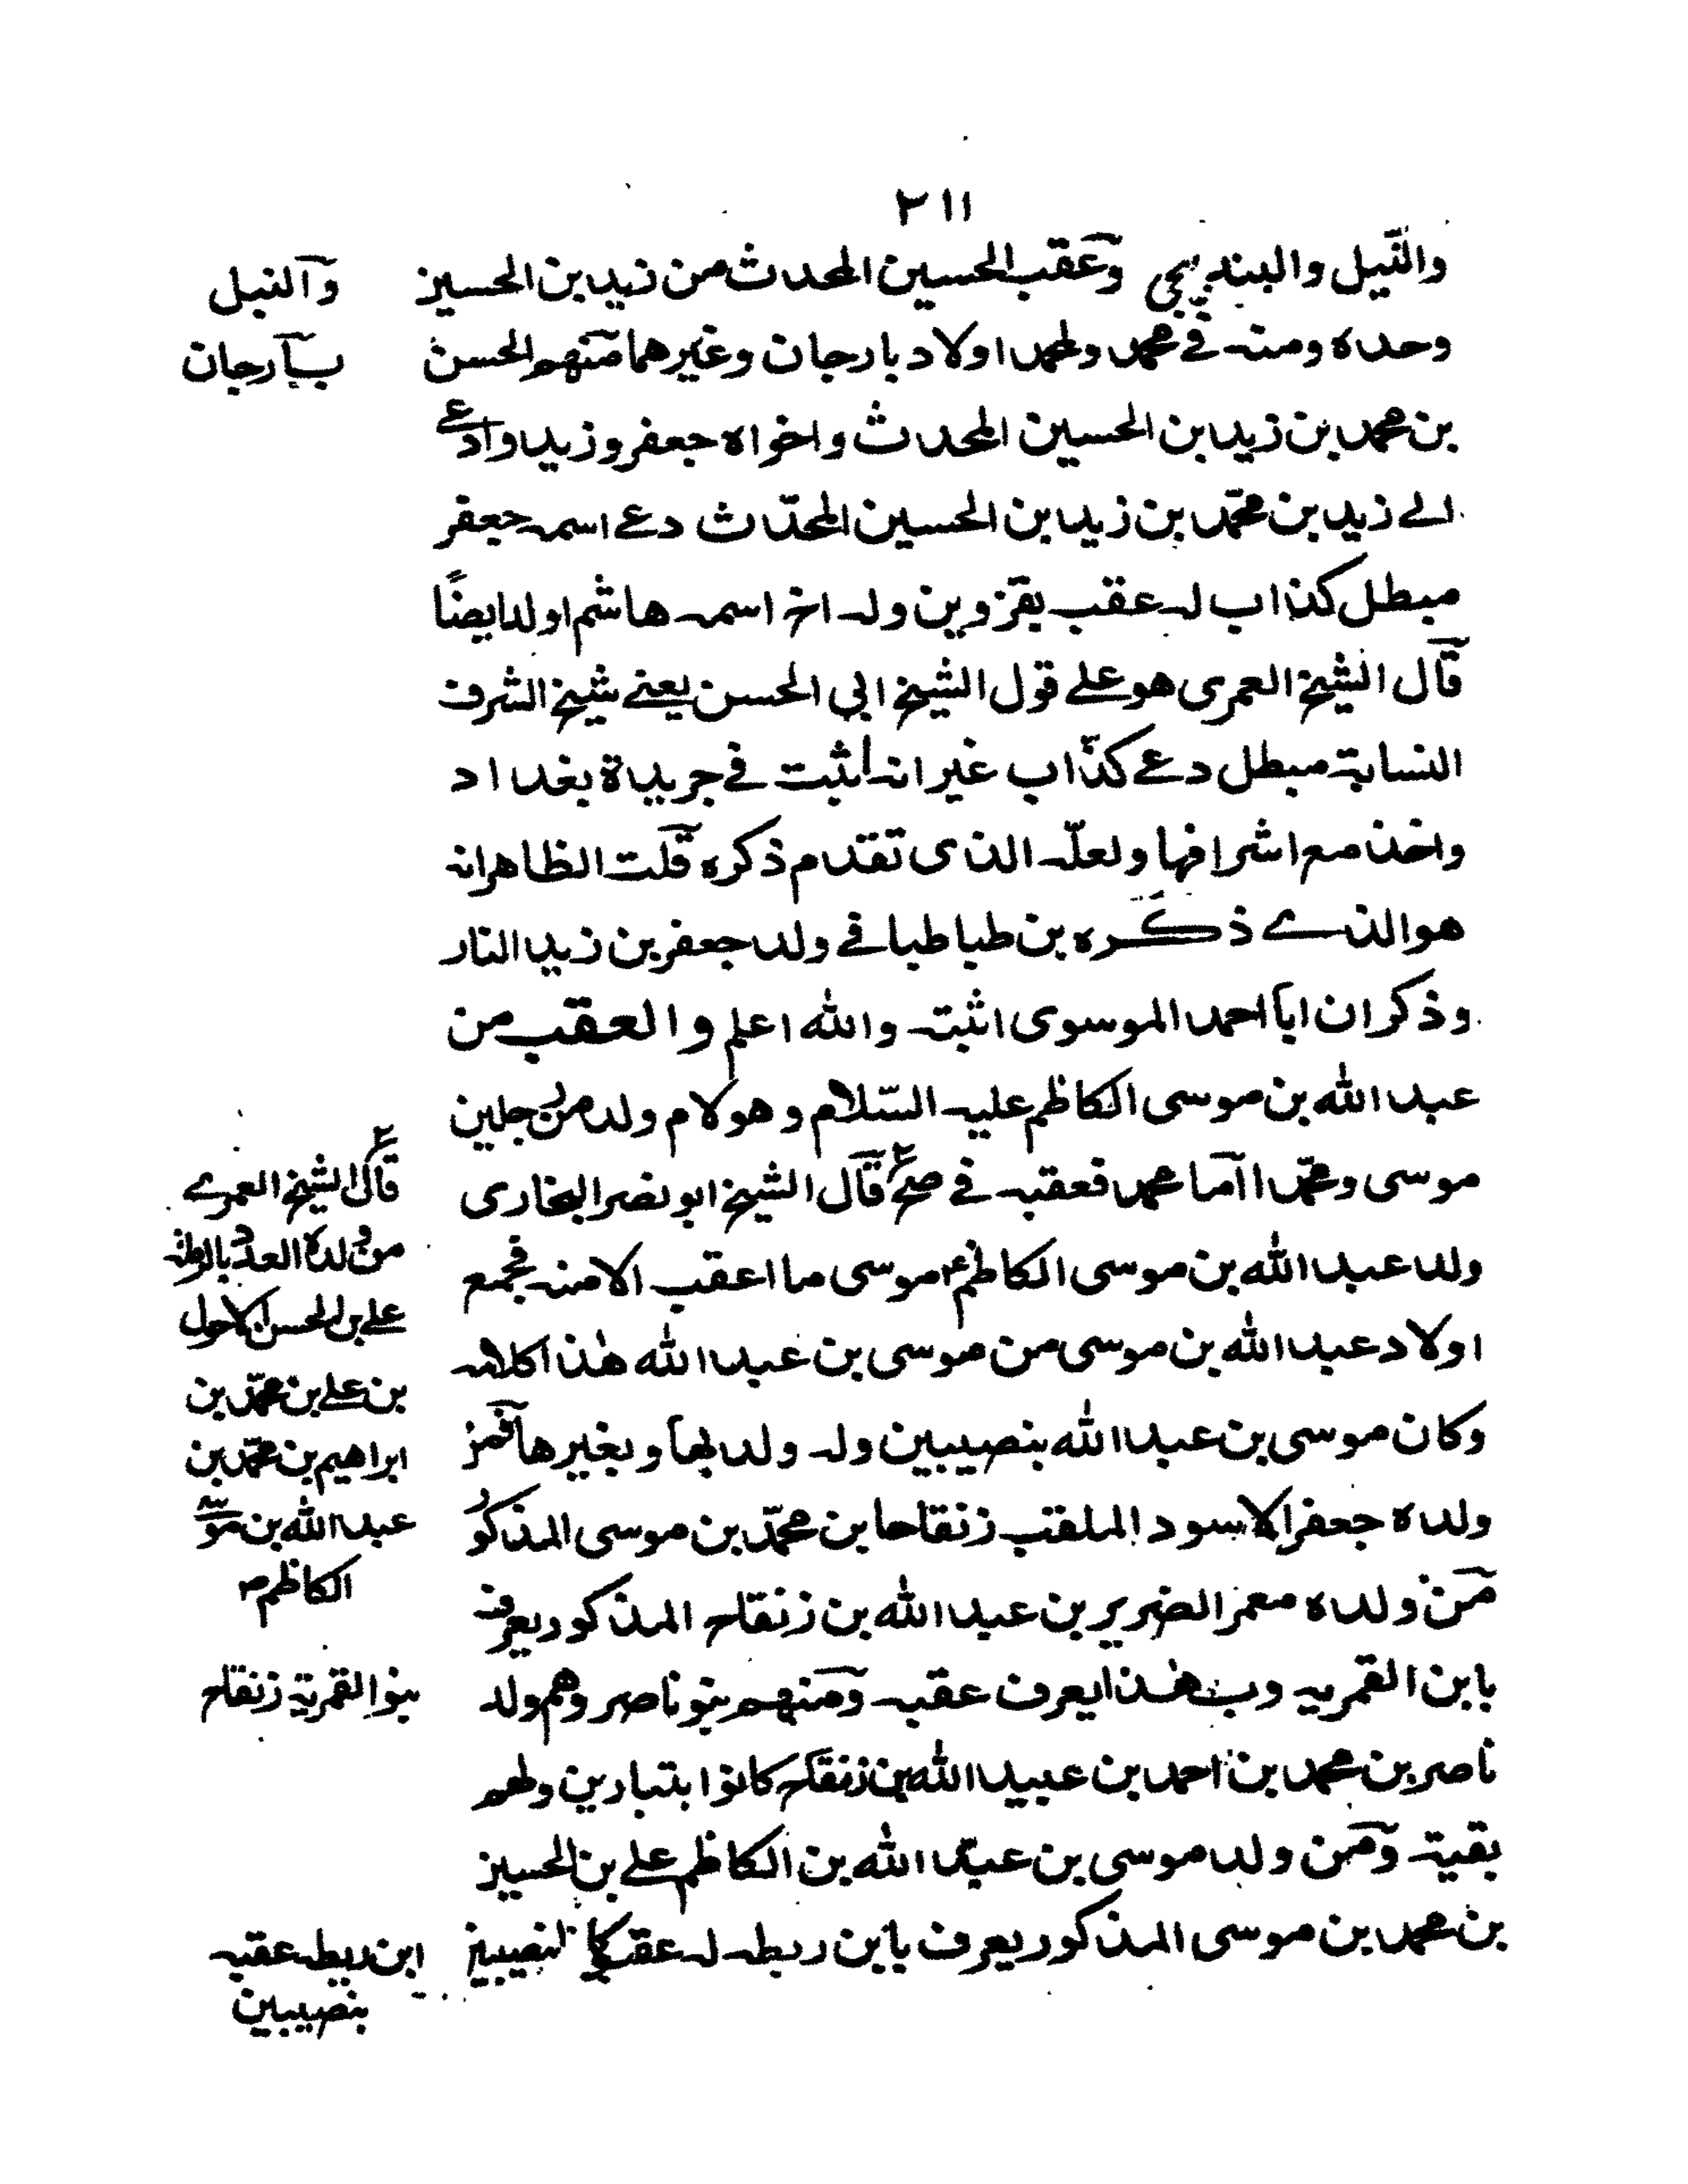 ٢١١
والنّيل والبندنيجي وعقب الحسين المحدث من زيد بن الحسين
وحده ومنه في محمد ولمحمد اولاد بارجان وغيرهما منهم الحسن
بن محمد بن زيد بن الحسين المحدث واخواه جعفر وزيد وادعے
الے زيد بن محمّد بن زيد بن الحسين المحدّث دعے اسمه جعفر
مبطل كذاب له عقب بقزوين وله اخ اسمه هاشم اولد ايضًا
قال الشيخ العمرى هو علے قول الشيخ ابي الحسن يعنے شيخ الشرف
النسابة مبطل دعے كذّاب غير انه اثبت في جريدة بغداد
واخذ مع اشرافها ولعلّه الذى تقدم ذكره قلت الظاهر انه
هو الذے ذكره بن طباطبا في ولد جعفر بن زيد النار
وذكر ان ابا احمد الموسوى اثبته والله اعلم والعقب من
عبد الله بن موسى الكاظم عليه السّلام وهو لام ولد من رجلين
موسى ومحمّد اما محمد فعقبه في صح قال الشيخ ابو نصر البخارى
ولد عبد الله بن موسى الكاظم ع موسى ما اعقب الا منه فجمع
اولاد عبد الله بن موسى من موسى بن عبد الله هذا كلامه
وكان موسى بن عبد الله بنصيبين وله ولد بها وبغيرها فمن
ولده جعفر الاسود الملقب زنقاحا بن محمّد بن موسى المذكور
من ولده معمر الضرير بن عبد الله بن زنقاح المذكور يعرف
بابن القمريه وبهذا يعرف عقبه ومنهم بنو ناصر وهم ولد
ناصر بن محمد بن احمد بن عبيد الله بن زنقاح كانوا بتبارين ولهم
بقية ومن ولد موسى بن عبد الله بن الكاظم علے بن الحسين
بن محمد بن موسى المذكور يعرف بابن ربطه له عقب بنصيبين
والنيل
بارجان
قال الشيخ العمرے
من ولده العدد بالرملة
علے بن الحسن الاحول
بن علے بن محمّد بن
ابراهيم بن محمّد بن
عبد الله بن موسى
الكاظم
بنو القمرية زنقاح
ابن ربطه عقبه
بنصيبين